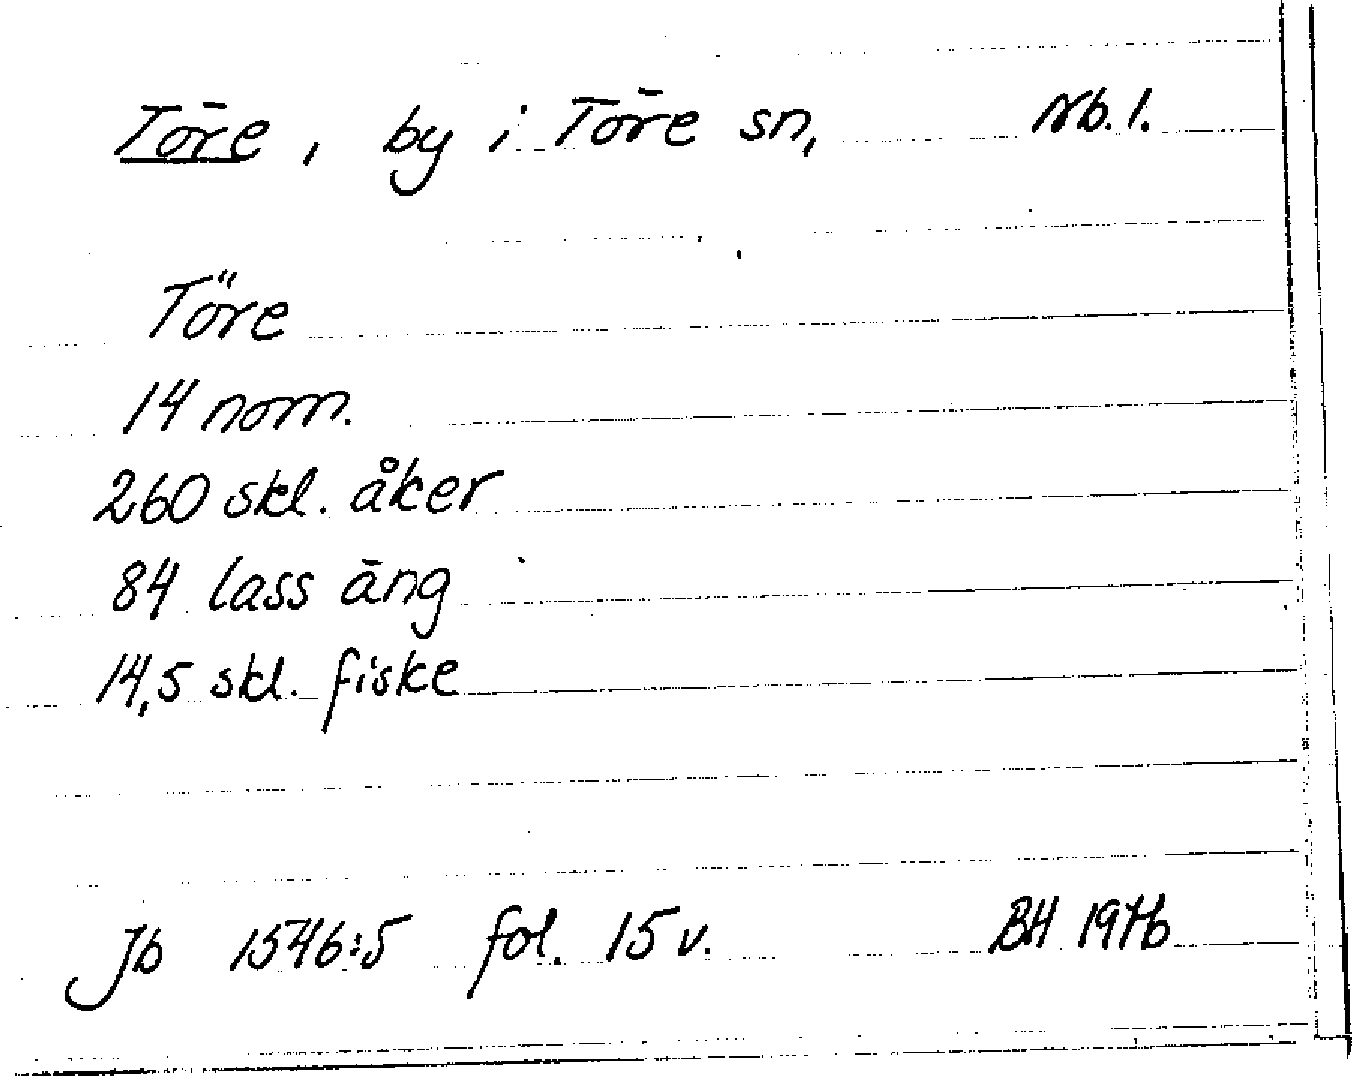 Töre, by i Töre sn, Nb. l.
Töre
14 nom.
260 skl. åker
84 lass äng
14,5 skl. fiske
Jb 1546:5 fol. 15 v. BH 1976